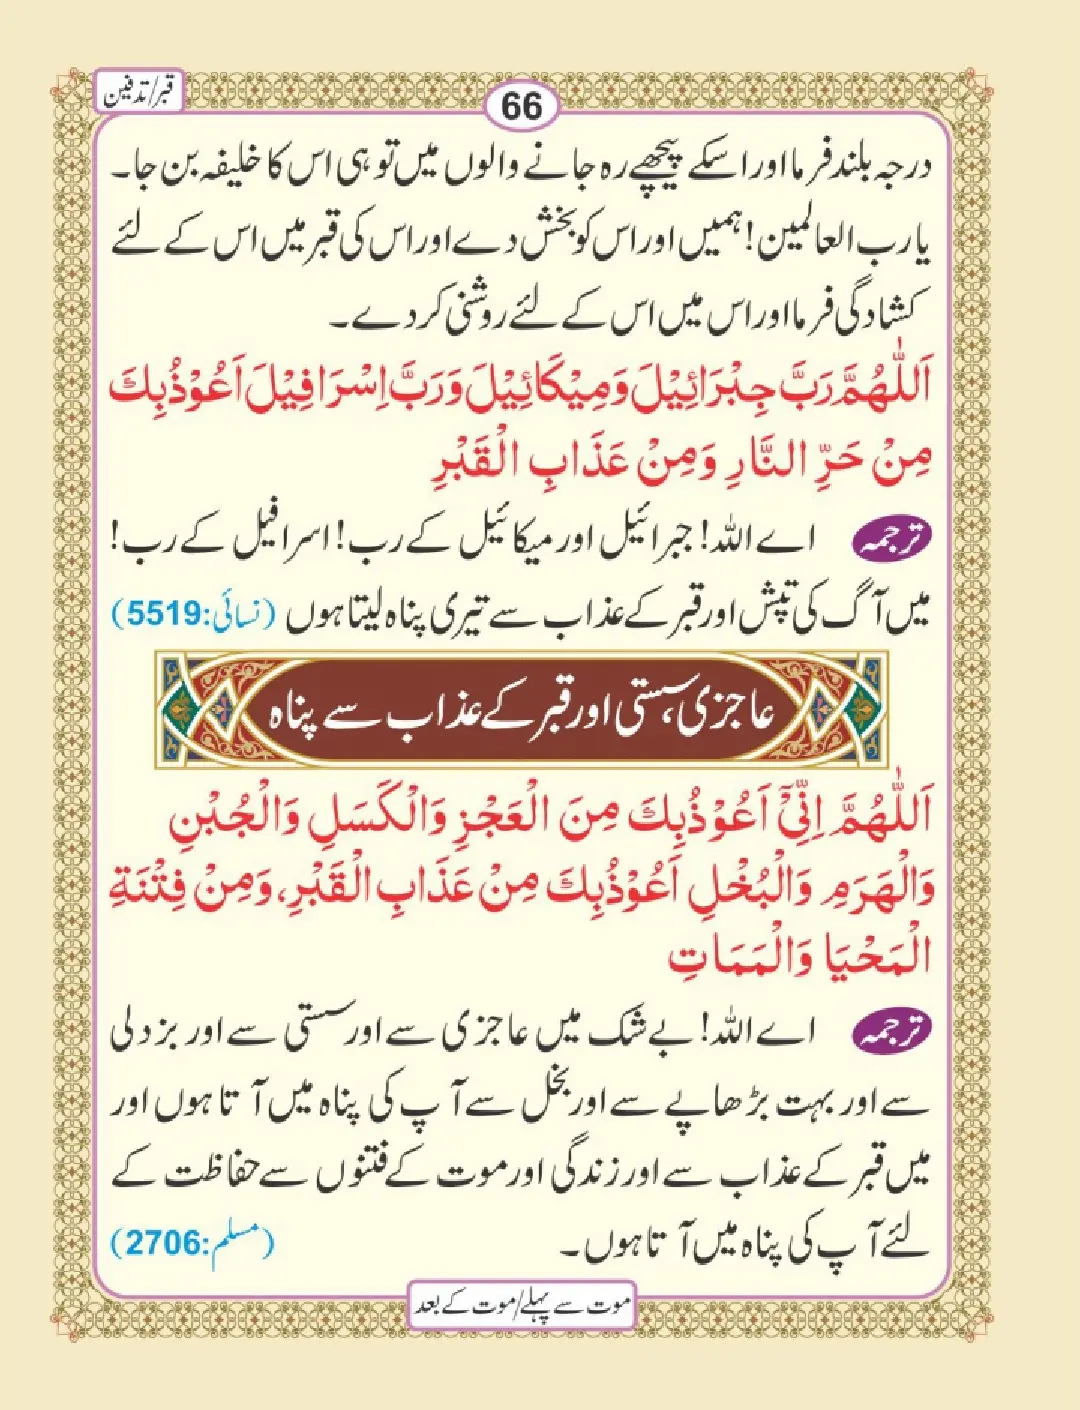 قبر/تدفین
66
درجہ بلند فرما اور اسکے پیچھے رہ جانے والوں میں تو ہی اس کا خلیفہ بن جا۔
یا رب العالمین! ہمیں اور اس کو بخش دے اور اس کی قبر میں اس کے لئے
کشادگی فرما اور اس میں اس کے لئے روشنی کر دے۔
اَللّٰهُمَّ رَبَّ جِبْرَائِيْلَ وَمِيْكَائِيْلَ وَرَبَّ اِسْرَافِيْلَ اَعُوْذُبِكَ
مِنْ حَرِّ النَّارِ وَمِنْ عَذَابِ الْقَبْرِ
ترجمہ اے اللہ! جبرائیل اور میکائیل کے رب! اسرافیل کے رب!
میں آگ کی تپش اور قبر کے عذاب سے تیری پناہ لیتا ہوں (نسائی:5519)
عاجزی، سستی اور قبر کے عذاب سے پناہ
اَللّٰهُمَّ اِنِّيْٓ اَعُوْذُبِكَ مِنَ الْعَجْزِ وَالْكَسَلِ وَالْجُبْنِ
وَالْهَرَمِ وَالْبُخْلِ اَعُوْذُبِكَ مِنْ عَذَابِ الْقَبْرِ، وَمِنْ فِتْنَةِ
الْمَحْيَا وَالْمَمَاتِ
ترجمہ اے اللہ! بے شک میں عاجزی سے اور سستی سے اور بزدلی
سے اور بہت بڑھاپے سے اور بخل سے آپ کی پناہ میں آتا ہوں اور
میں قبر کے عذاب سے اور زندگی اور موت کے فتنوں سے حفاظت کے
لئے آپ کی پناہ میں آتا ہوں۔ (مسلم:2706)
موت سے پہلے/موت کے بعد